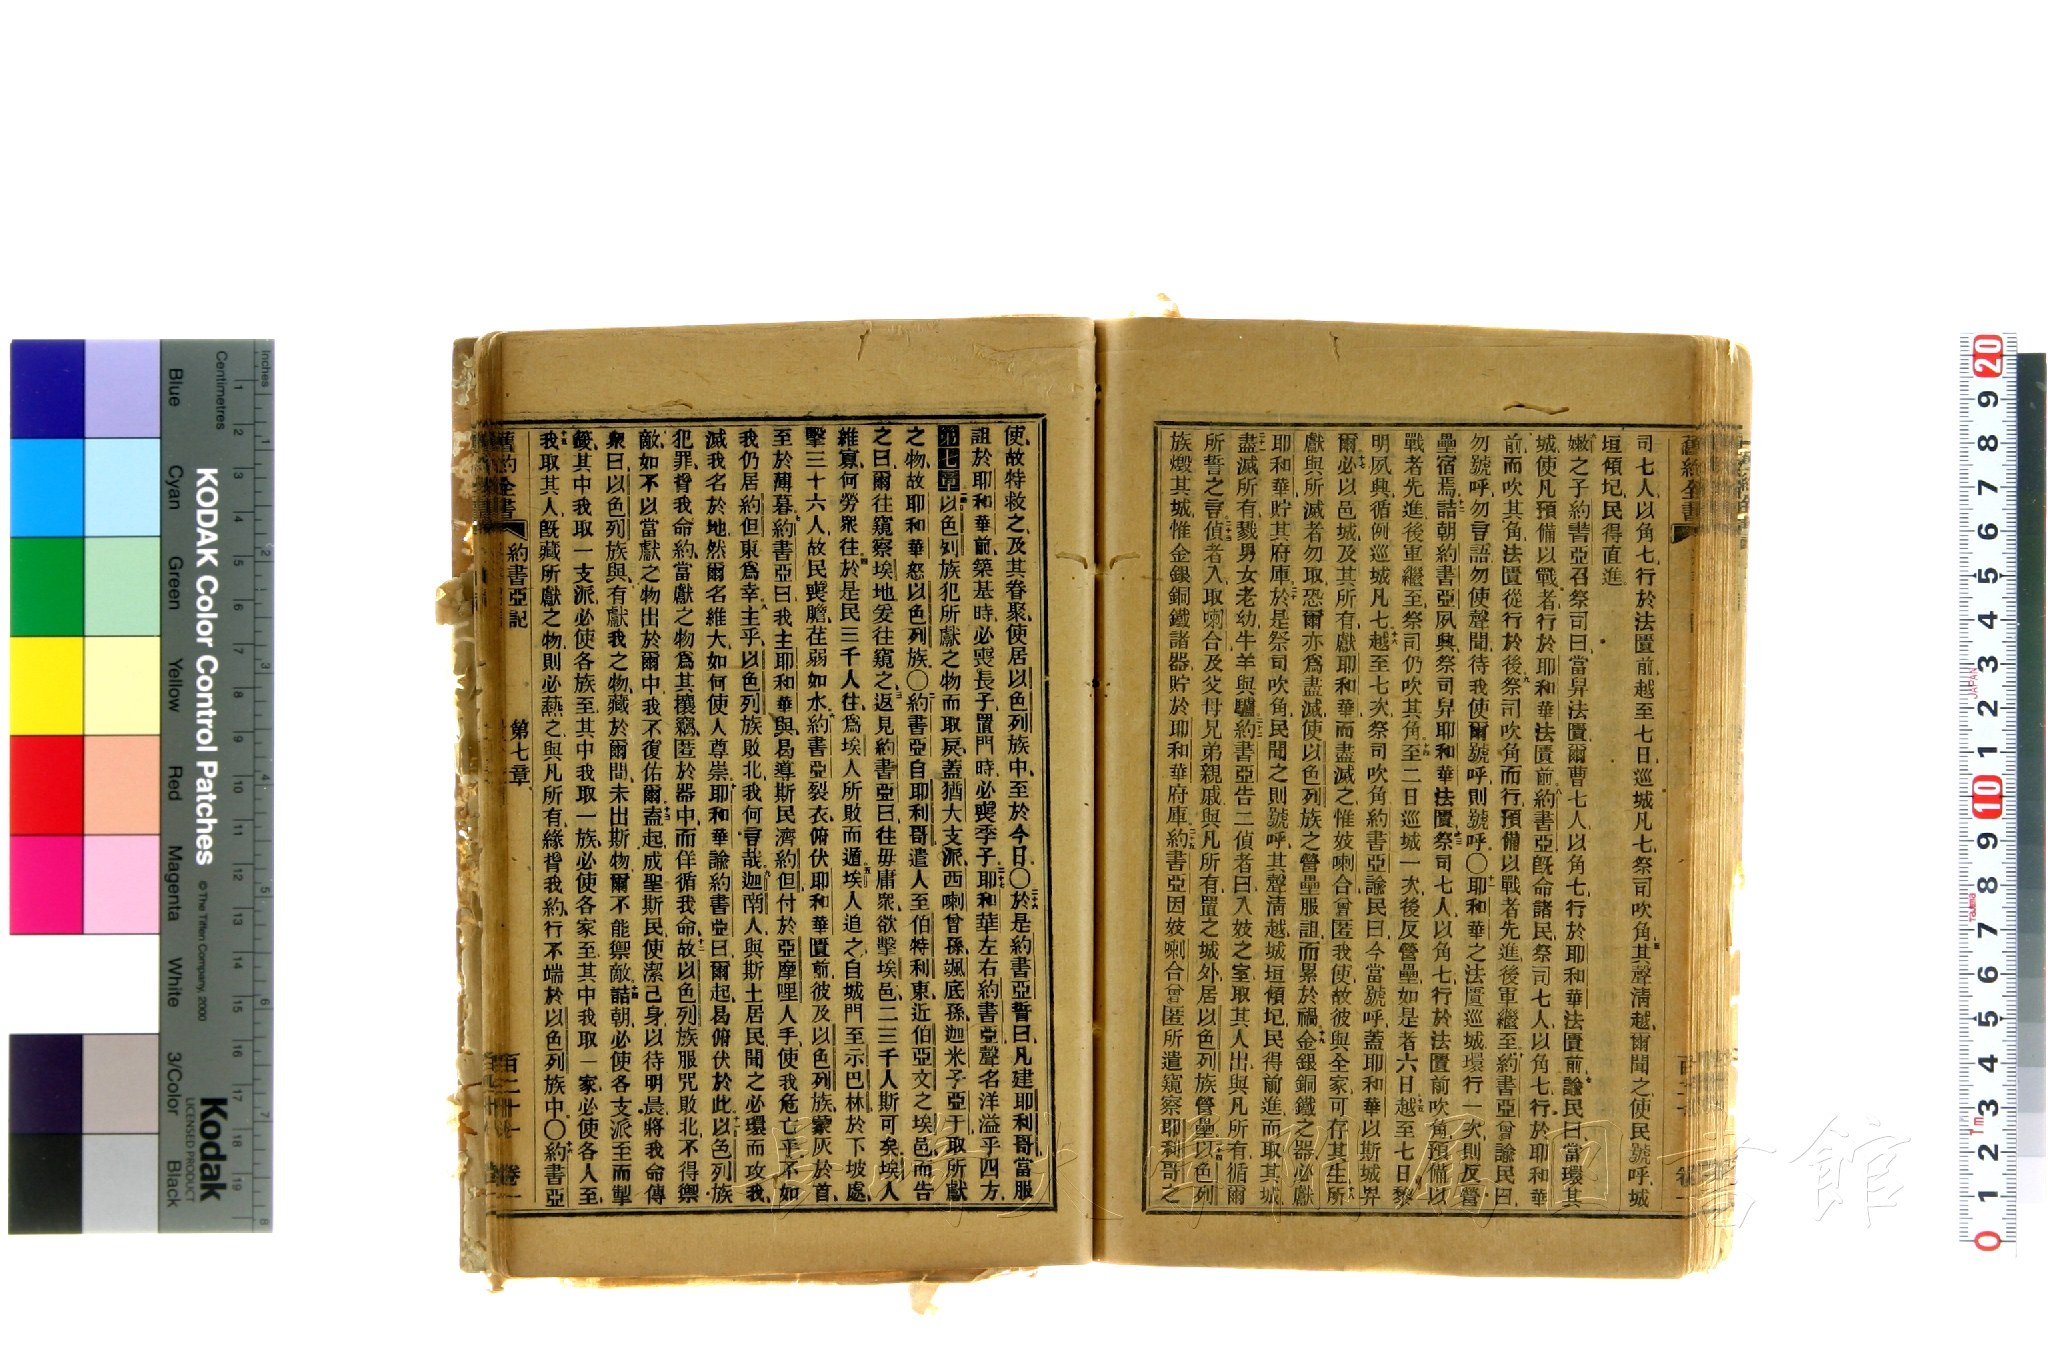 司七人以角七行於法匱前越至七日巡城凡七祭司吹角其聲淸越爾聞之使民號呼城
垣傾圮民得直進
嫩之子約書亞召祭司曰當舁法匱爾曹七人以角七行於耶和華法匱前諭民曰當環其
城使凡預備以戰者行於耶和華法匱前約書亞旣命諸民祭司七人以角七行於耶和華
前而吹其角法匱從行於後祭司吹角而行預備以戰者先進後軍繼至約書亞曾諭民曰
勿號呼勿言語勿使聲聞待我使爾號呼則號呼〇耶和華之法匱巡城環行一次則反營
壘宿焉詰朝約書亞夙興祭司舁耶和華法匱祭司七人以角七行於法匱前吹角預備以
戰者先進後軍繼至祭司仍吹其角至二日巡城一次後反營壘如是者六日越至七日黎
明夙興循例巡城凡七越至七次祭司吹角約書亞諭民曰今當號呼蓋耶和華以斯城畀
爾必以邑城及其所有獻耶和華而盡滅之惟妓喇合曾匿我使故彼與全家可存其生所
獻與所滅者勿取恐爾亦爲盡滅使以色列族之營壘服詛而累於禍金銀銅鐵之器必獻
耶和華貯其府庫於是祭司吹角民聞之則號呼其聲淸越城垣傾圮民得前進而取其城
盡滅所有戮男女老幼牛羊與驢約書亞告二偵者曰入妓之室取其人出與凡所有循爾
所誓之言偵者入取喇合及父母兄弟親戚與凡所有置之城外居以色列族營壘以色列
族燬其城惟金銀銅鐵諸器貯於耶和華府庫約書亞因妓喇合曾匿所遣窺察耶利哥之
舊約全書
使故特救之及其眷聚使居以色列族中至於今日〇於是約書亞誓曰凡建耶利哥當服
詛於耶和華前築基時必喪長子置門時必喪季子耶和華左右約書亞聲名洋溢乎四方
第七章以色列族犯所獻之物而取屍蓋猶大支派西喇曾孫颯底孫迦米子亞干取所獻
之物故耶和華怒以色列族〇約書亞自耶利哥遣人至伯特利東近伯亞文之埃邑而告
之曰爾往窺察埃地爰往窺之返見約書亞曰往毋庸衆欲擊埃邑二三千人斯可矣埃人
維寡何勞衆往於是民三千人往爲埃人所敗而遁埃人追之自城門至示巴林於下坡處
擊三十六人故民喪膽荏弱如水約書亞裂衣俯伏耶和華匱前彼及以色列族蒙灰於首
至於薄暮約書亞曰我主耶和華與曷導斯民濟約但付於亞摩哩人手使我危亡乎不如
我仍居約但東爲幸主乎以色列族敗北我何言哉迦南人與斯土居民聞之必環而攻我
滅我名於地然爾名維大如何使人尊崇耶和華諭約書亞曰爾起曷俯伏於此以色列族
犯罪背我命約當獻之物爲其攘竊匿於器中而佯循我命故以色列族服咒敗北不得禦
敵如不以當獻之物出於爾中我不復佑爾盍起成聖斯民使潔己身以待明晨將我命傳
衆曰以色列族與有獻我之物藏於爾間未出斯物爾不能禦敵詰朝必使各支派至而掣
籤其中我取一支派必使各族至其中我取一族必使各家至其中我取一家必使各人至
我取其人旣藏所獻之物則必爇之與凡所有緣背我約行不端於以色列族中〇約書亞
舊約全書 約書亞記 第七章 百二十一 卷一
KODAK Color Control Patches
© The Tiffen Company, 2000
Kodak
LICENSED PRODUCT
Inches
Centimetres
Blue
Cyan
Green
Yellow
Red
Magenta
White
3/Color
Black
JAPAN